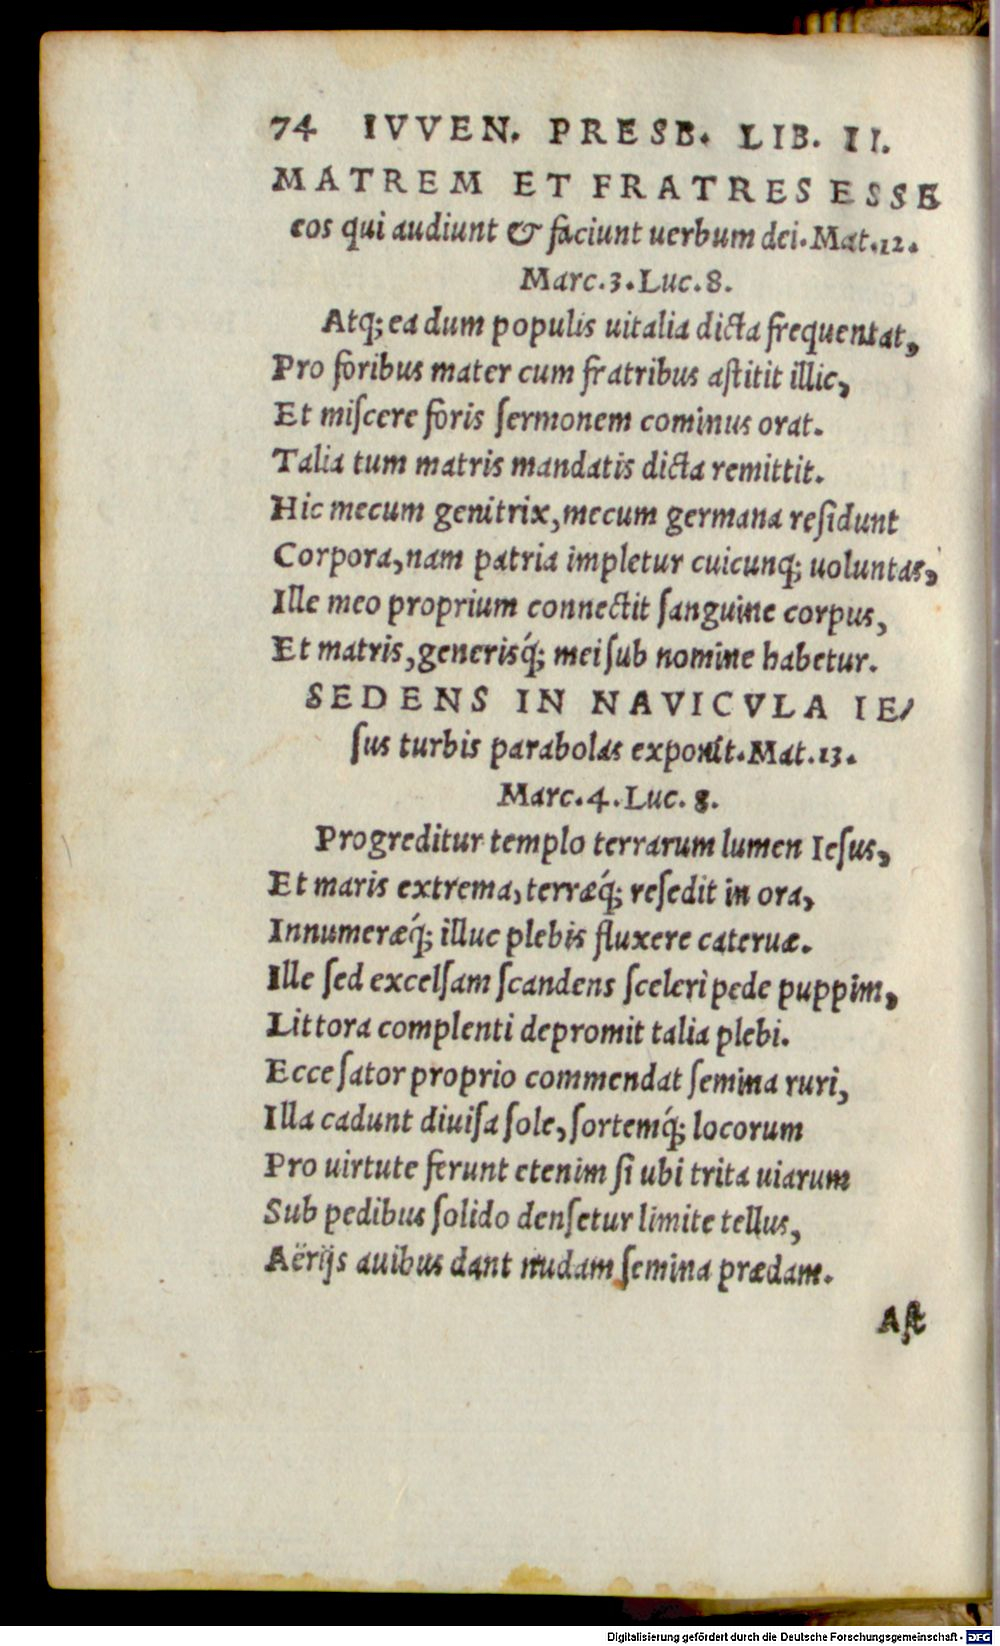 74 IVVEN. PRESB. LIB. II.
MATREM ET FRATRES ESSE
eos qui audiunt & faciunt uerbum dei. Mat.12.
Marc.3. Luc.8.
Atq; ea dum populis uitalia dicta frequentat,
Pro foribus mater cum fratribus aſtitit illic,
Et miſcere foris ſermonem cominus orat.
Talia tum matris mandatis dicta remittit.
Hic mecum genitrix, mecum germana reſidunt
Corpora, nam patria impletur cuicunq; uoluntas,
Ille meo proprium connectit ſanguine corpus,
Et matris, generisq́; mei ſub nomine habetur.
SEDENS IN NAVICVLA IE/
ſus turbis parabolas exponit. Mat.13.
Marc.4. Luc. 8.
Progreditur templo terrarum lumen Ieſus,
Et maris extrema, terræq́; reſedit in ora,
Innumeræq́; illuc plebis fluxere cateruæ.
Ille ſed excelſam ſcandens ſceleri pede puppim,
Littora complenti depromit talia plebi.
Ecce ſator proprio commendat ſemina ruri,
Illa cadunt diuiſa ſole, ſortemq́; locorum
Pro uirtute ferunt etenim ſi ubi trita uiarum
Sub pedibus ſolido denſetur limite tellus,
Aërijs auibus dant nudam ſemina prædam.
Aſt
Digitalisierung gefördert durch die Deutsche Forschungsgemeinschaft - DFG